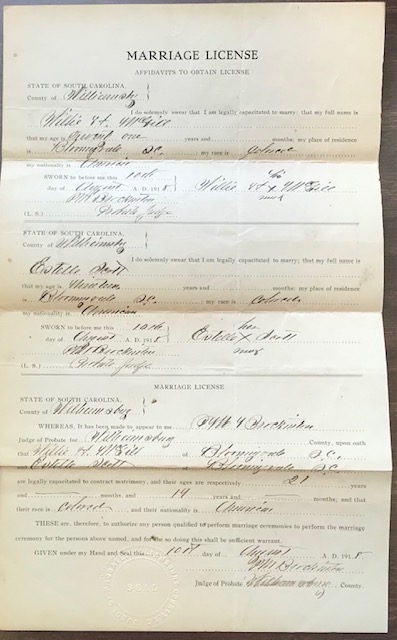 MARRIAGE LICENSE
AFFIDAVITS TO OBTAIN LICENSE
STATE OF SOUTH CAROLINA,
County of Williamsburg
I do solemnly swear that I am legally capacitated to marry; that my full name is
Willie H. McGill
that my age is twenty one years and months; my place of residence
is Bloomingvale S.C. my race is colored
my nationality is American
SWORN to before me this 10th
day of August A. D. 1918
Willie H. x McGill
his
mark
P M Brockinton
(L. S.) Probate Judge
STATE OF SOUTH CAROLINA,
County of Williamsburg
I do solemnly swear that I am legally capacitated to marry; that my full name is
Estelle Scott
that my age is nineteen years and months; my place of residence
is Bloomingvale S.C. my race is colored
my nationality is American
SWORN to before me this 10th
day of August A. D. 1918
her
Estelle X Scott
mark
P M Brockinton
(L. S.) Probate Judge
MARRIAGE LICENSE
STATE OF SOUTH CAROLINA,
County of Williamsburg
WHEREAS, It has been made to appear to me Brockinton
Judge of Probate for Williamsburg County, upon oath
that Willie H. McGill of Bloomingvale S.C.
and Estelle Scott of Bloomingvale S.C.
are legally capacitated to contract matrimony, and their ages are respectively 21 years
and months and 19 years and months; and that
their race is colored, and their nationality is American
THESE are, therefore, to authorize any person qualified to perform marriage ceremonies to perform the marriage
ceremony for the persons above named, and for the so doing this shall be sufficient warrant.
GIVEN under my Hand and Seal this 10th day of August A. D. 1918
P M Brockinton
Judge of Probate Williamsburg County.
SEAL